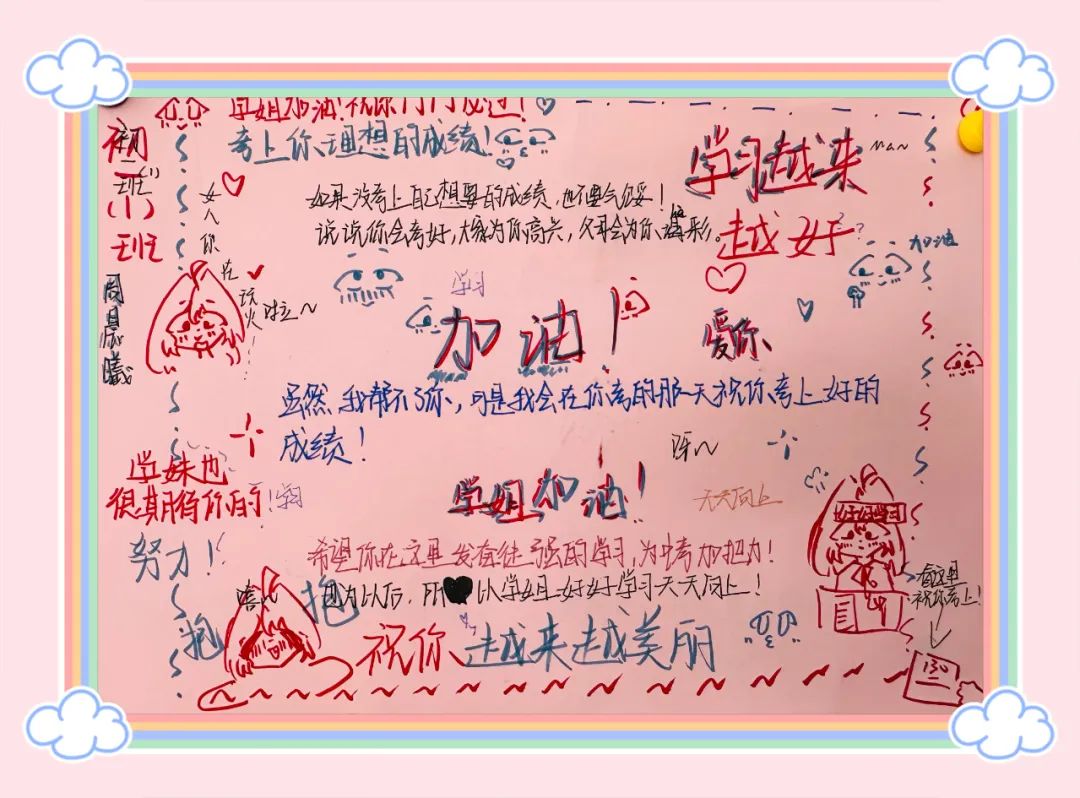 学姐加油!祝你门门及过!
考上你理想的成绩!
初二
班
(1)
班
女人你在玩火啦~
如果没考上自己想要的成绩,也不要气馁!
说说你会考好,大家为你高兴,父母会为你
学习越来
越好
man
加油
学习
加油!
爱你
虽然我帮不了你,可是我会在你考的那一天祝你考上好的
成绩!
呀~
学妹也
很期待你的!
努力!
学习
学姐加油!
天天向上
希望你在这里发奋徒强的学习,为中考加把力!
因为以后,所以学姐好好学习天天向上!
嘻
抱抱
祝你越来越美丽
好好学习
看这里
祝你考上!
130